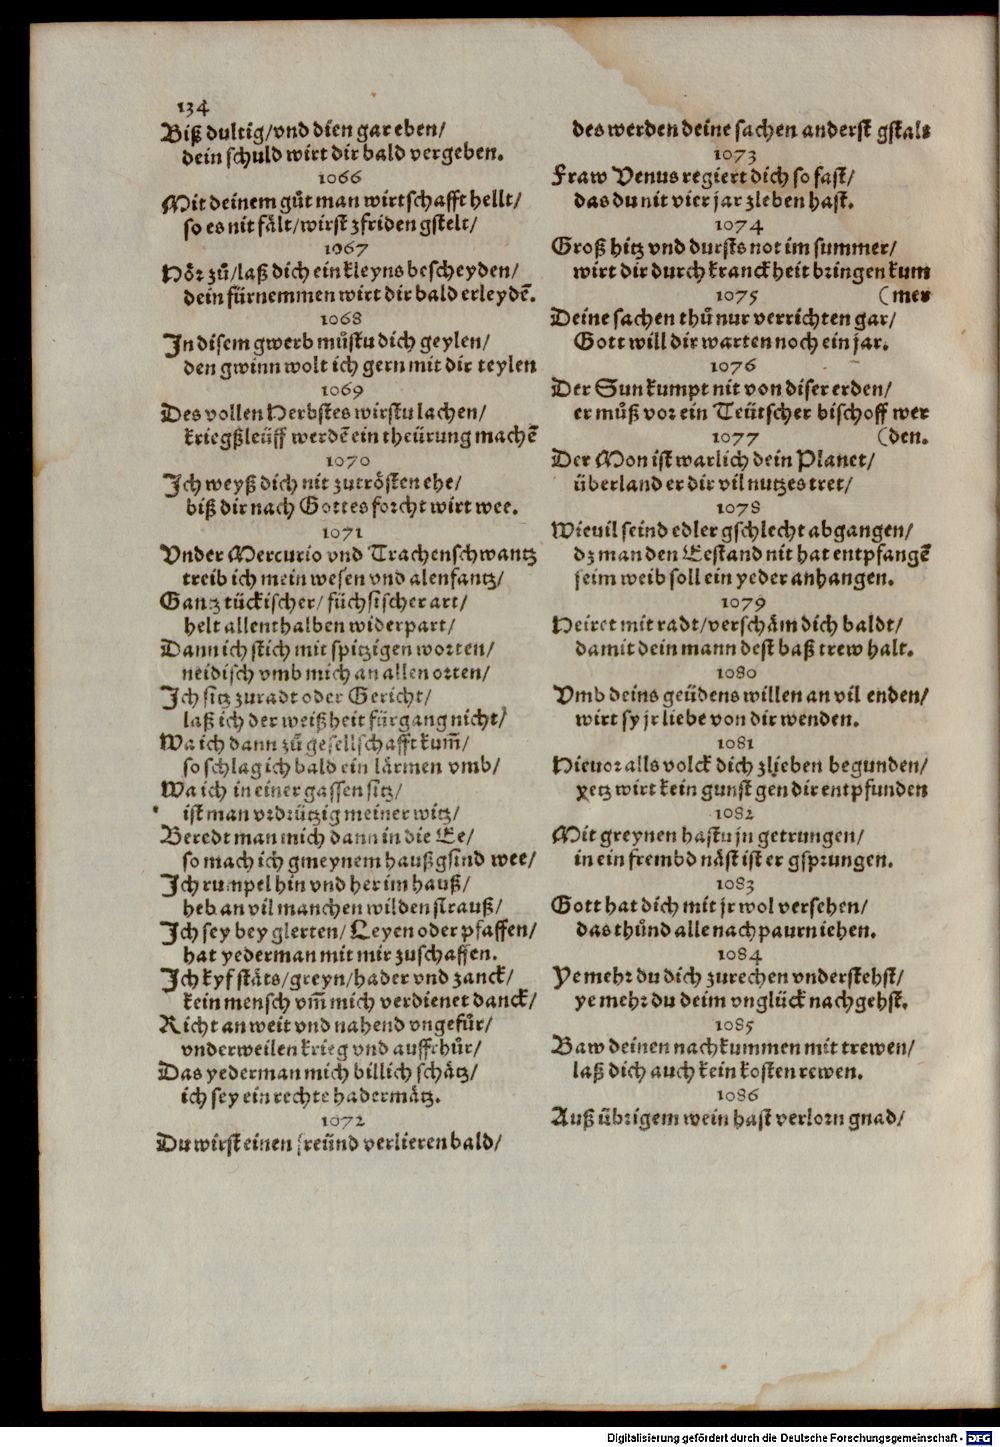 134
Biß dultig/vnd dien gar eben/
dein schuld wirt dir bald vergeben.
1066
Mit deinem gůt man wirtschafft hellt/
so es nit fält/wirst zfriden gstelt/
1067
Hör zů/laß dich ein kleyns bescheyden/
dein fürnemmen wirt dir bald erleydē.
1068
In disem gwerb můstu dich geylen/
den gwinn wolt ich gern mit dir teylen
1069
Des vollen Herbstes wirstu lachen/
kriegßleüff werdē ein theürung machē
1070
Ich weyß dich nit zutrösten ehe/
biß dir nach Gottes forcht wirt wee.
1071
Vnder Mercurio vnd Trachenschwantz
treib ich mein wesen vnd alenfantz/
Gantz tückischer/füchsischer art/
helt allenthalben widerpart/
Dann ich stich mit spitzigen worten/
neidisch vmb mich an allen orten/
Ich sitz zuradt oder Gericht/
laß ich der weißheit fürgang nicht/
Wa ich dann zů gesellschafft kum̄/
so schlag ich bald ein lärmen vmb/
Wa ich in einer gassen sitz/
ist man vrdrützig meiner witz/
Beredt man mich dann in die Ee/
so mach ich gmeynem haußgsind wee/
Ich rumpel hin vnd her im hauß/
heb an vil manchen wilden strauß/
Ich sey bey glerten/Leyen oder pfaffen/
hat yederman mit mir zuschaffen.
Ich kyf stäts/greyn/hader vnd zanck/
kein mensch vm̄ mich verdienet danck/
Richt an weit vnd nahend vngefůr/
vnderweilen krieg vnd auffrhůr/
Das yederman mich billich schätz/
ich sey ein rechte hadermätz.
1072
Du wirst einen freünd verlieren bald/
des werden deine sachen anderst gstalt
1073
Fraw Venus regiert dich so fast/
das du nit vier jar zleben hast.
1074
Groß hitz vnd dursts not im summer/
wirt dir durch kranckheit bringen kum
1075 (mer
Deine sachen thů nur verrichten gar/
Gott will dir warten noch ein jar.
1076
Der Sun kumpt nit von diser erden/
er můß vor ein Teütscher bischoff wer
1077 (den.
Der Mon ist warlich dein Planet/
überland er dir vil nutzes tret/
1078
Wieuil seind edler gschlecht abgangen/
dz man den Eestand nit hat entpfangē
seim weib soll ein yeder anhangen.
1079
Heiret mit radt/verschäm dich baldt/
damit dein mann dest baß trew halt.
1080
Vmb deins geüdens willen an vil enden/
wirt sy jr liebe von dir wenden.
1081
Hieuor alls volck dich zlieben begunden/
yetz wirt kein gunst gen dir entpfunden
1082
Mit greynen hastu jn getrungen/
in ein frembd näst ist er gsprungen.
1083
Gott hat dich mit jr wol versehen/
das thůnd alle nachpaurn iehen.
1084
Ye mehr du dich zurechen vnderstehst/
ye mehr du deim vnglück nachgehst.
1085
Baw deinen nachkummen mit trewen/
laß dich auch kein kosten rewen.
1086
Auß übrigem wein hast verlorn gnad/
Digitalisierung gefördert durch die Deutsche Forschungsgemeinschaft - DFG